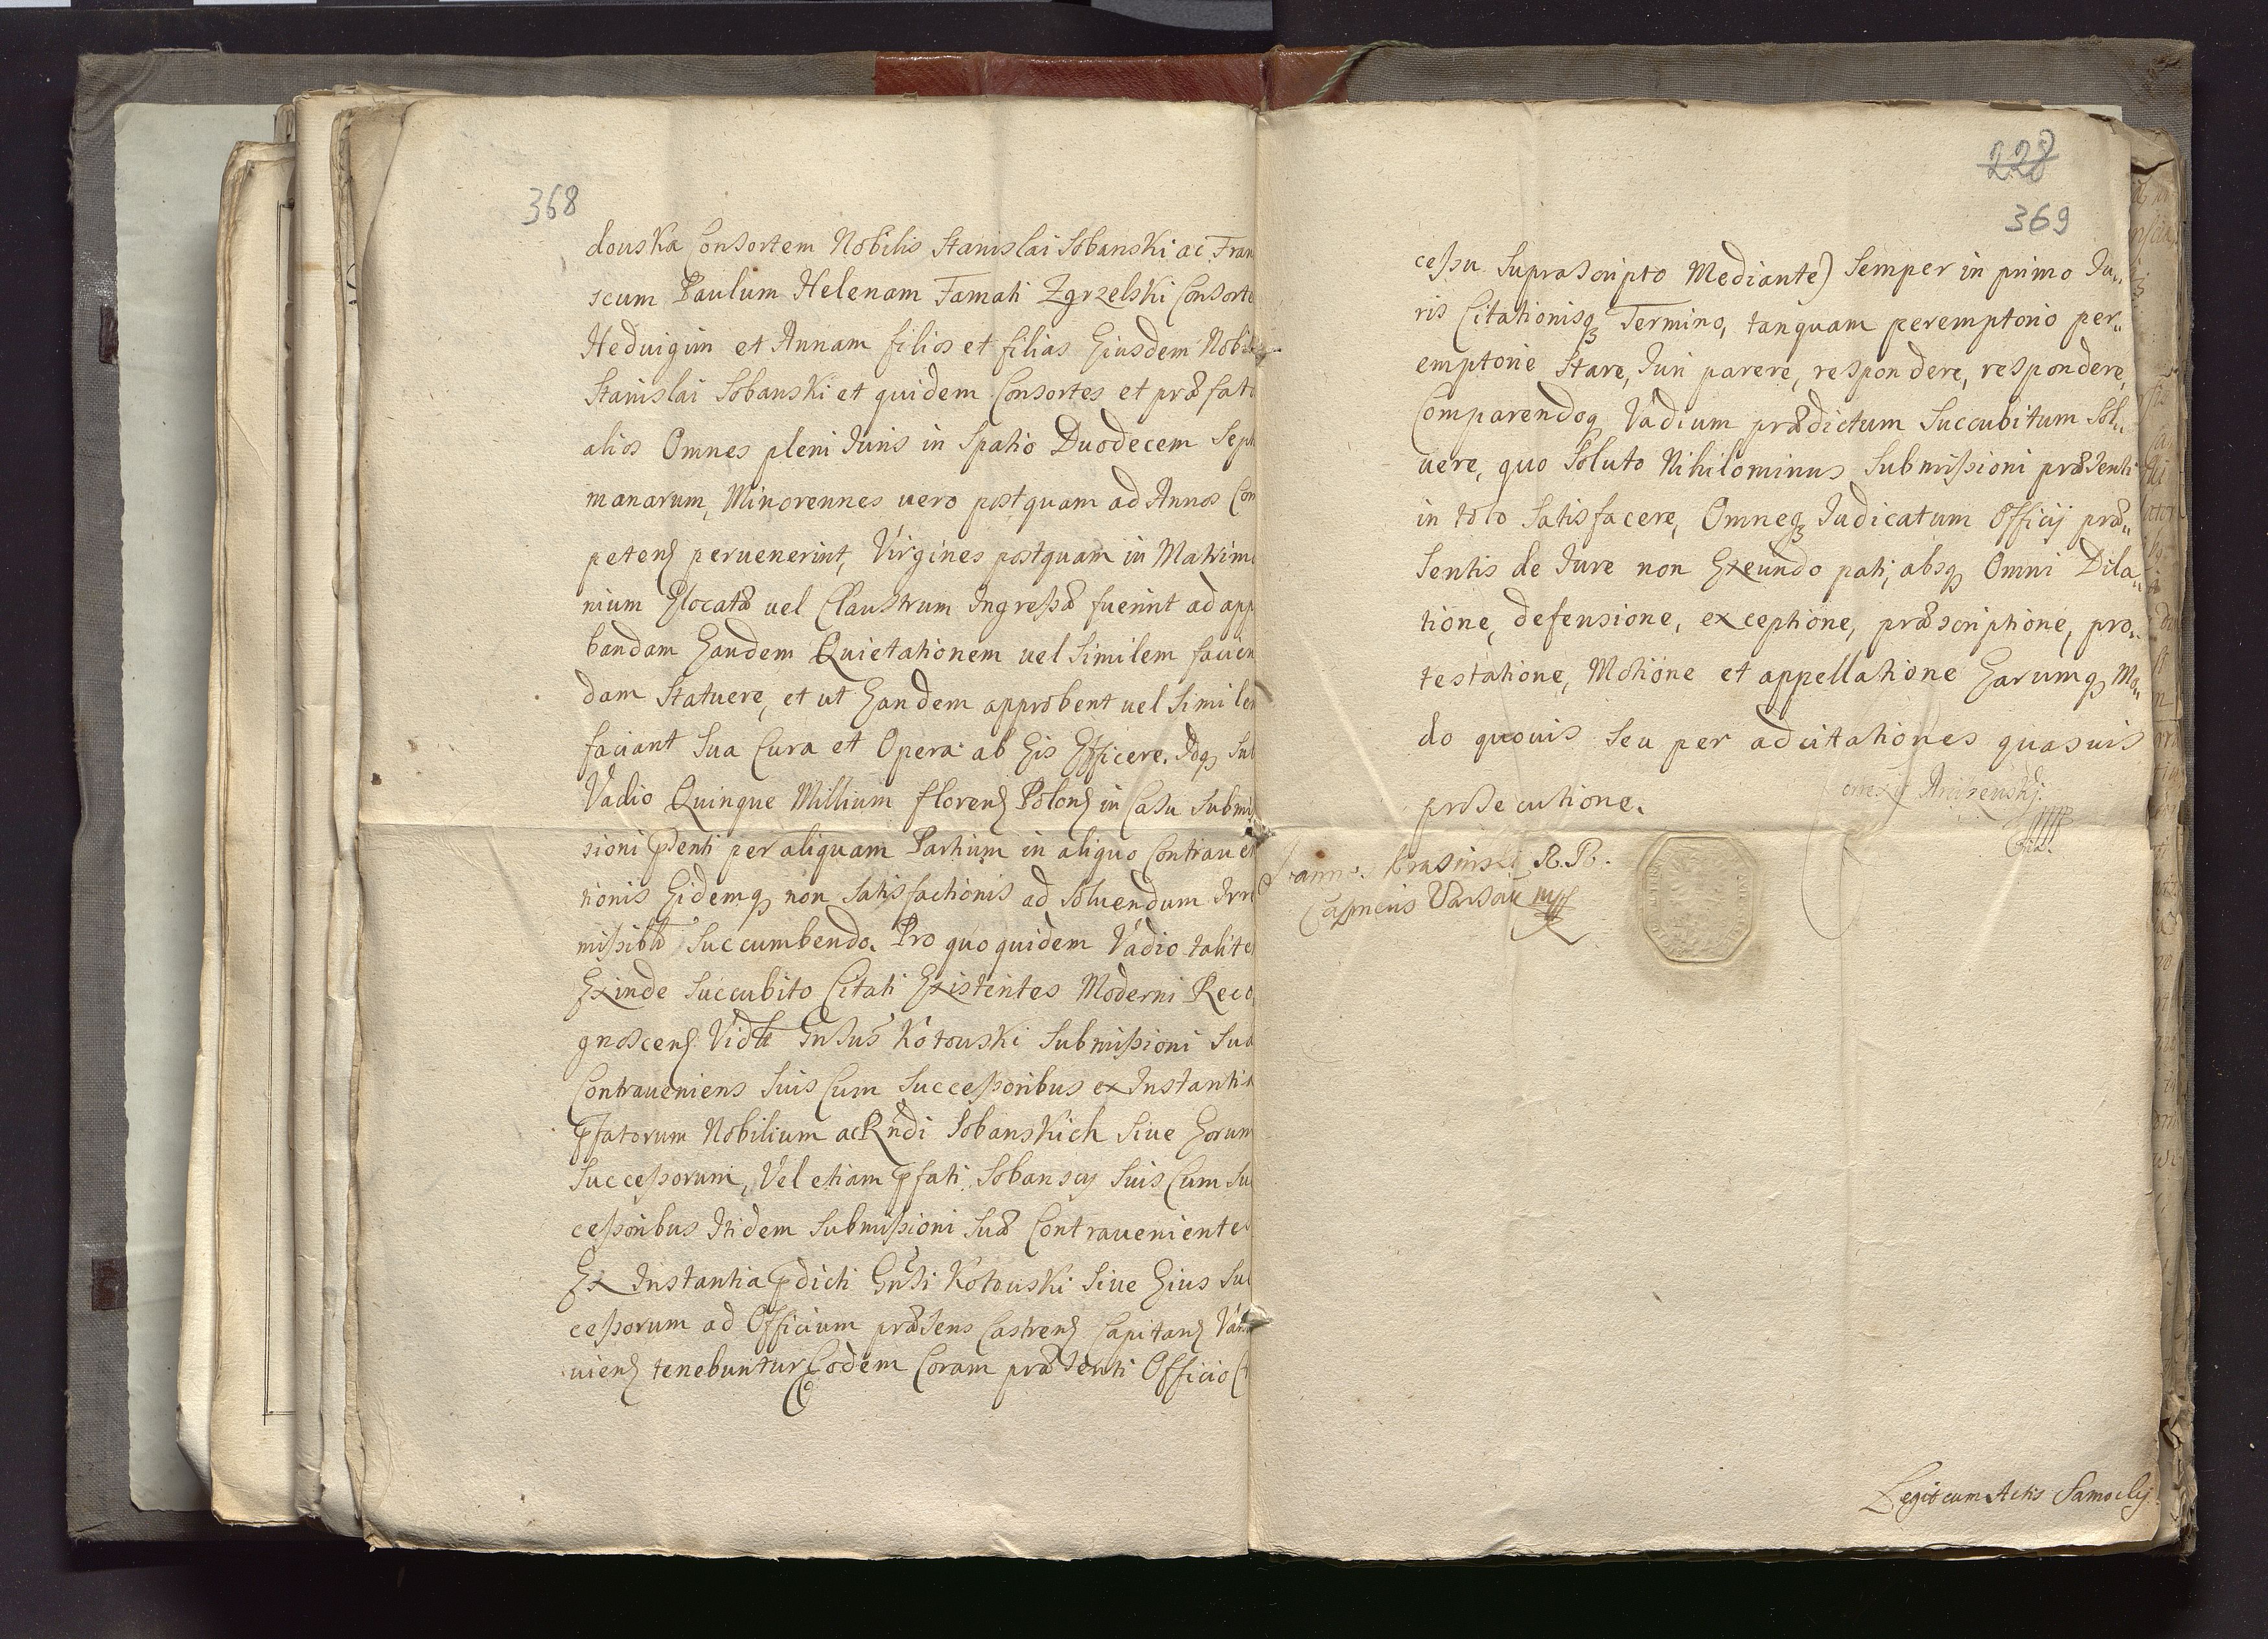 368
douska Consortem Nobilis Stanislai Sobanski ac Fran
scum Paulum Helenam Famati Zgrzelski Consorte
Heduigim et Annam filios et filias Eiusdem Nobil
Stanislai Sobanski et quidem Consortes et præfat
alios Omnes pleni Juris in Spatio Duodecem Sept
manarum, Minorennes uero postquam ad Annos Com
petenȝ peruenerint, Virgines postquam in Matrimo
nium Elocatæ uel Claustrum Ingreßæ fuerint ad app
bandam Eandem Quietationem uel Similem facien
dam Statuere, et ut Eandem approbent uel Similem
faciant Sua Cura et Opera ab Eis Efficere. Idqȝ Sub
Vadio Quinque Millium florenȝ Polonȝ in Casu Submi
sioni pſenti per aliquam Partium in aliquo Contrauen
tionis Eidemqȝ non Satisfactionis ad Soluendum Irre
mißibłr Succumbendo. Pro quo quidem Vadio talite
Exinde Succubito Citati Existentes Moderni Reco
gnoscenȝ Vidłt Gnsus Kotouski Submißioni Suæ
Contraueniens Suis Cum Succeßoribus ex Instantia
pfatorum Nobilium ac Rndi Sobanskich Siue Eorum
Succeßorum, Vel etiam pfati Sobanscy Suis Cum Su
ceßoribus Itidem Submißioni Suæ Contrauenientes
Ex Instantia pdicti Gnsi Kotouski Siue Eius Suc
ceßorum ad Officium præsens Castrenȝ Capitanȝ Varsa
uienȝ tenebuntur Eodem Coram præsenti Officio
228
369
ceßu Suprascripto Mediante) Semper in primo Iu„
ris Citationisqȝ Termino, tanquam peremptorio per„
emptorie Stare, Iuri parere, respondere, respondere,
Comparendoqȝ Vadium prædictum Succubitum Sol„
uere, quo Soluto Nihilominus Submißioni præsenti
in toto Satisfacere, Omneqȝ Iudicatum Officij præ„
sentis de Iure non Exeundo pati, absqȝ Omni Dila„
tione, defensione, exceptione, præscriptione, pro„
testatione, Motione et appellatione Earumqȝ Mo„
do quouis Seu per adcitationes quasuis
prosecutione.
Joannes Krasinski R. R.
Capneus Varsau mpp
Legit cum Actis Samocky